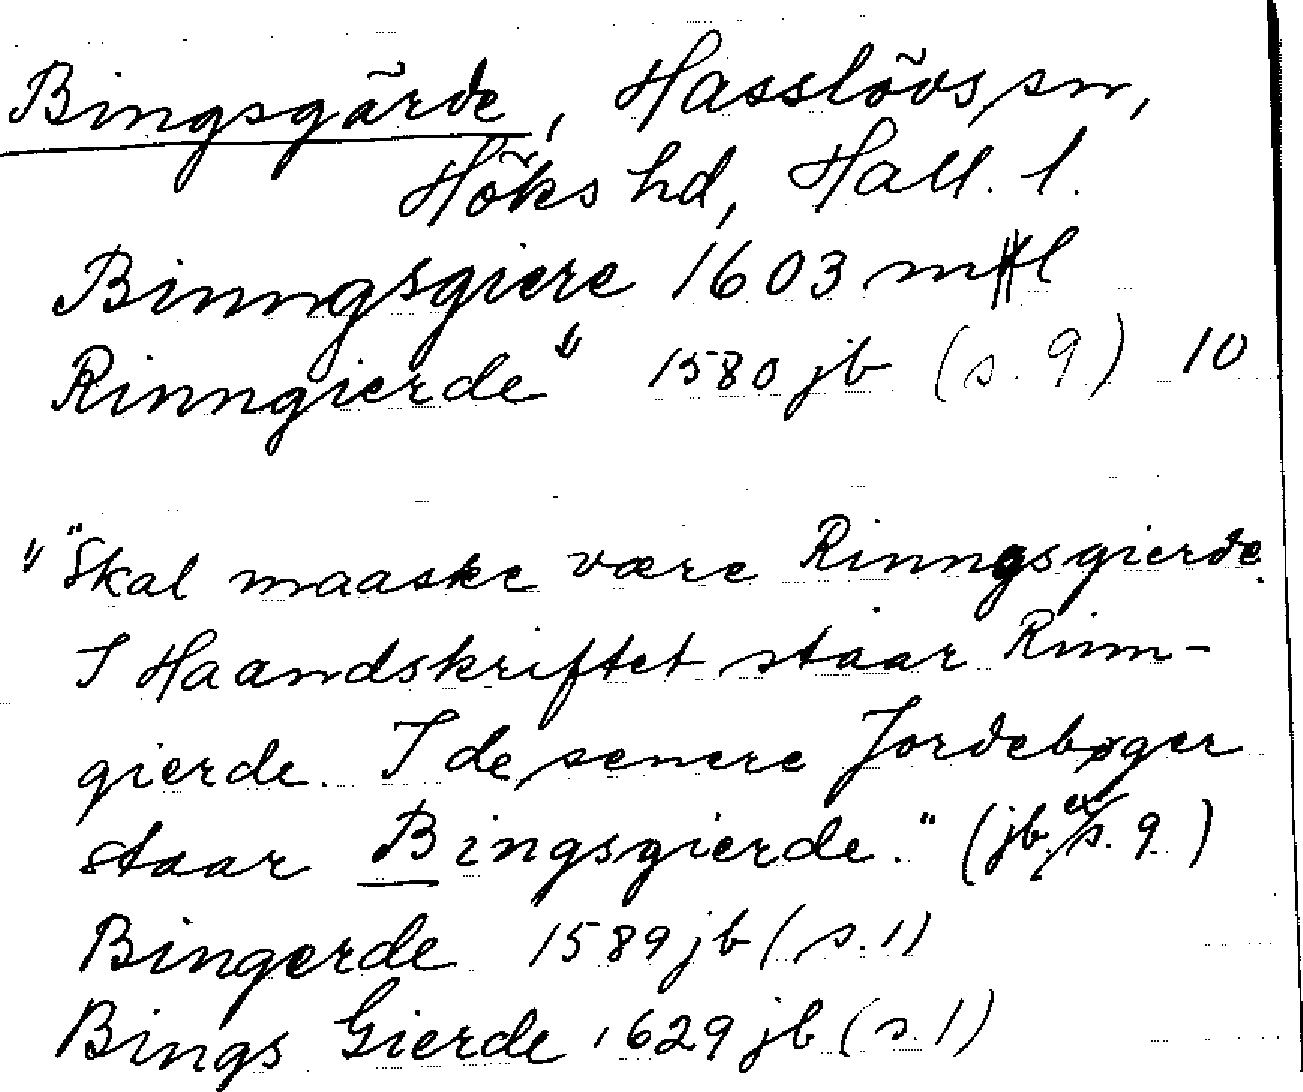 Bingsgärde, Hasslövs sn,
Höks hd, Hall. l.
Binngsgiere 1603 mtl
Rinngierde" 1580 jb (s. 9) 10
" "Skal maaske være Rinngsgierde.
I Haandskriftet staar Rinn-
gierde. I de senere Jordebøger
staar Bingsgierde." (jb s. 9)
Bingerde 1589 jb (s. 1)
Bings Gierde 1629 jb (s. 1)